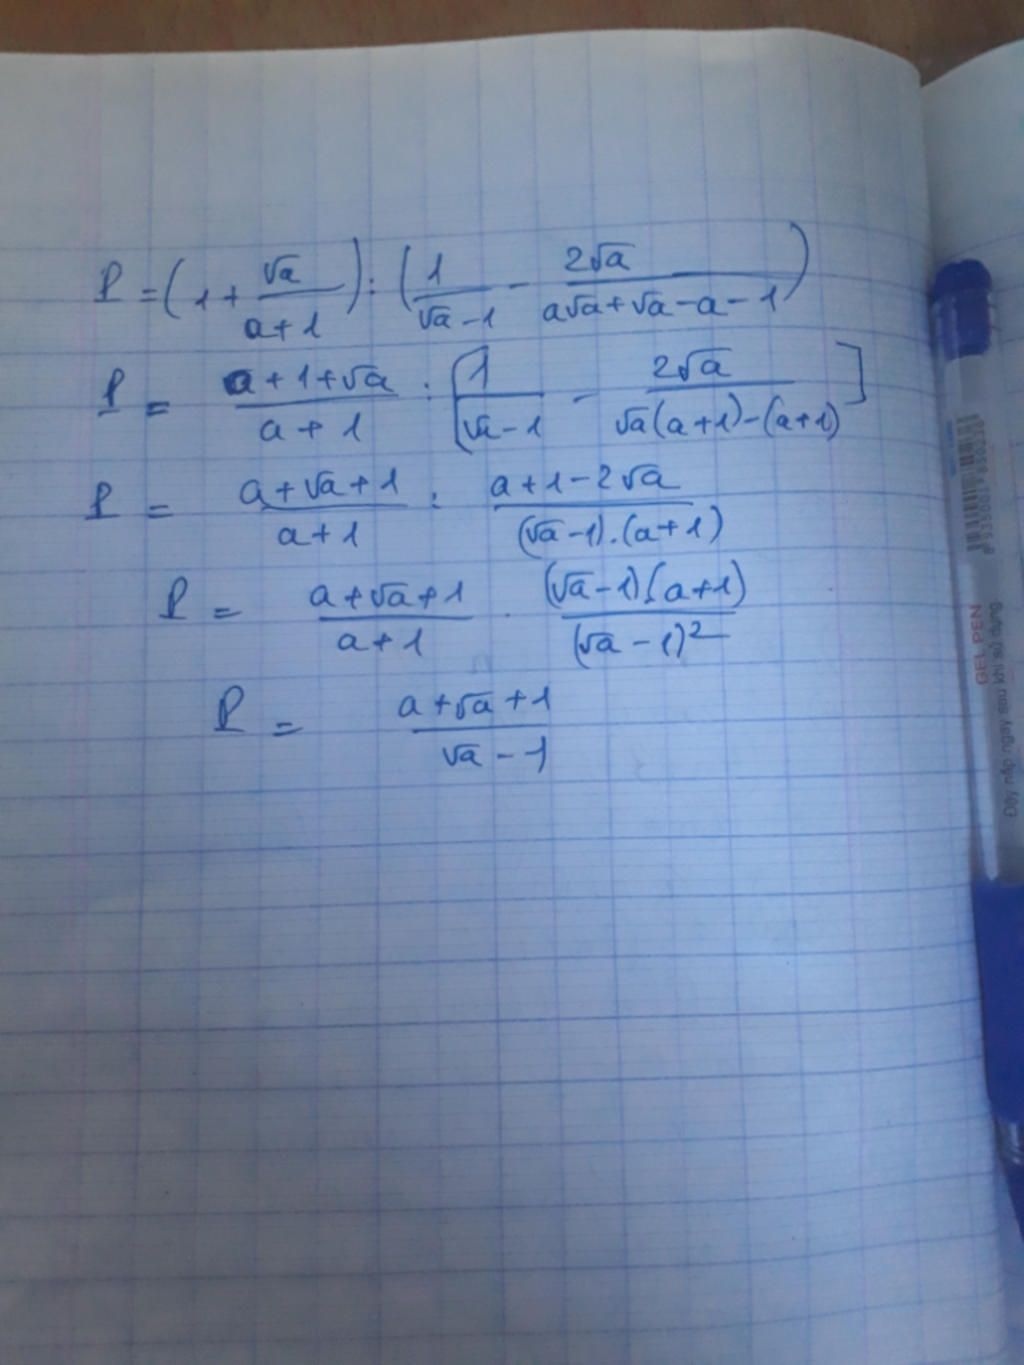 P = (1 + √a/(a+1)) : (1/(√a-1) - 2√a/(a√a+√a-a-1))
P = (a+1+√a)/(a+1) : [1/(√a-1) - 2√a/(√a(a+1)-(a+1))]
P = (a+√a+1)/(a+1) : (a+1-2√a)/((√a-1).(a+1))
P = (a+√a+1)/(a+1) . ((√a-1).(a+1))/(√a-1)²
P = (a+√a+1)/(√a-1)
GEL PEN
Đậy nắp ngay sau khi sử dụng